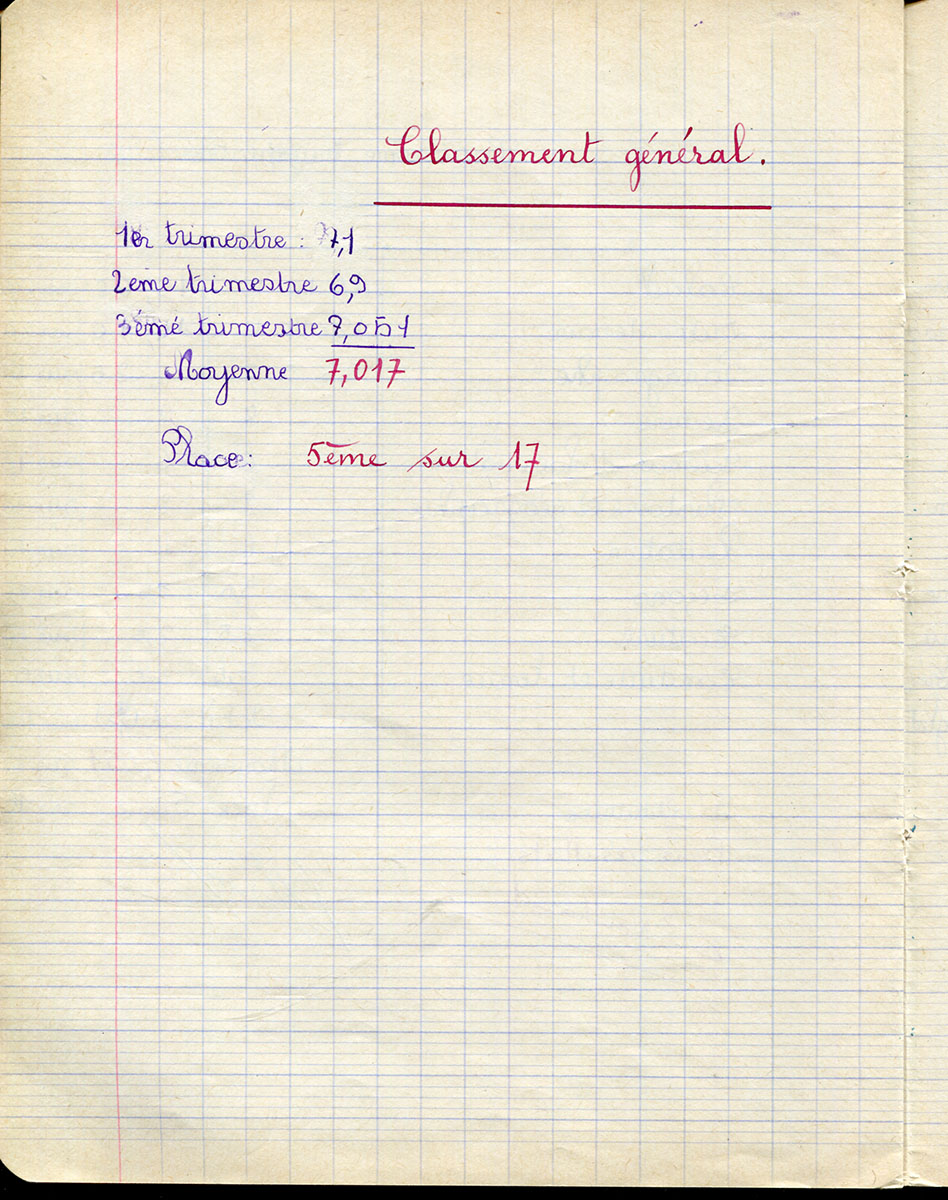 Classement général.
1er trimestre : 7,1
2eme trimestre 6,9
3émé trimestre 7,051
Moyenne 7,017
Place : 5ème sur 17